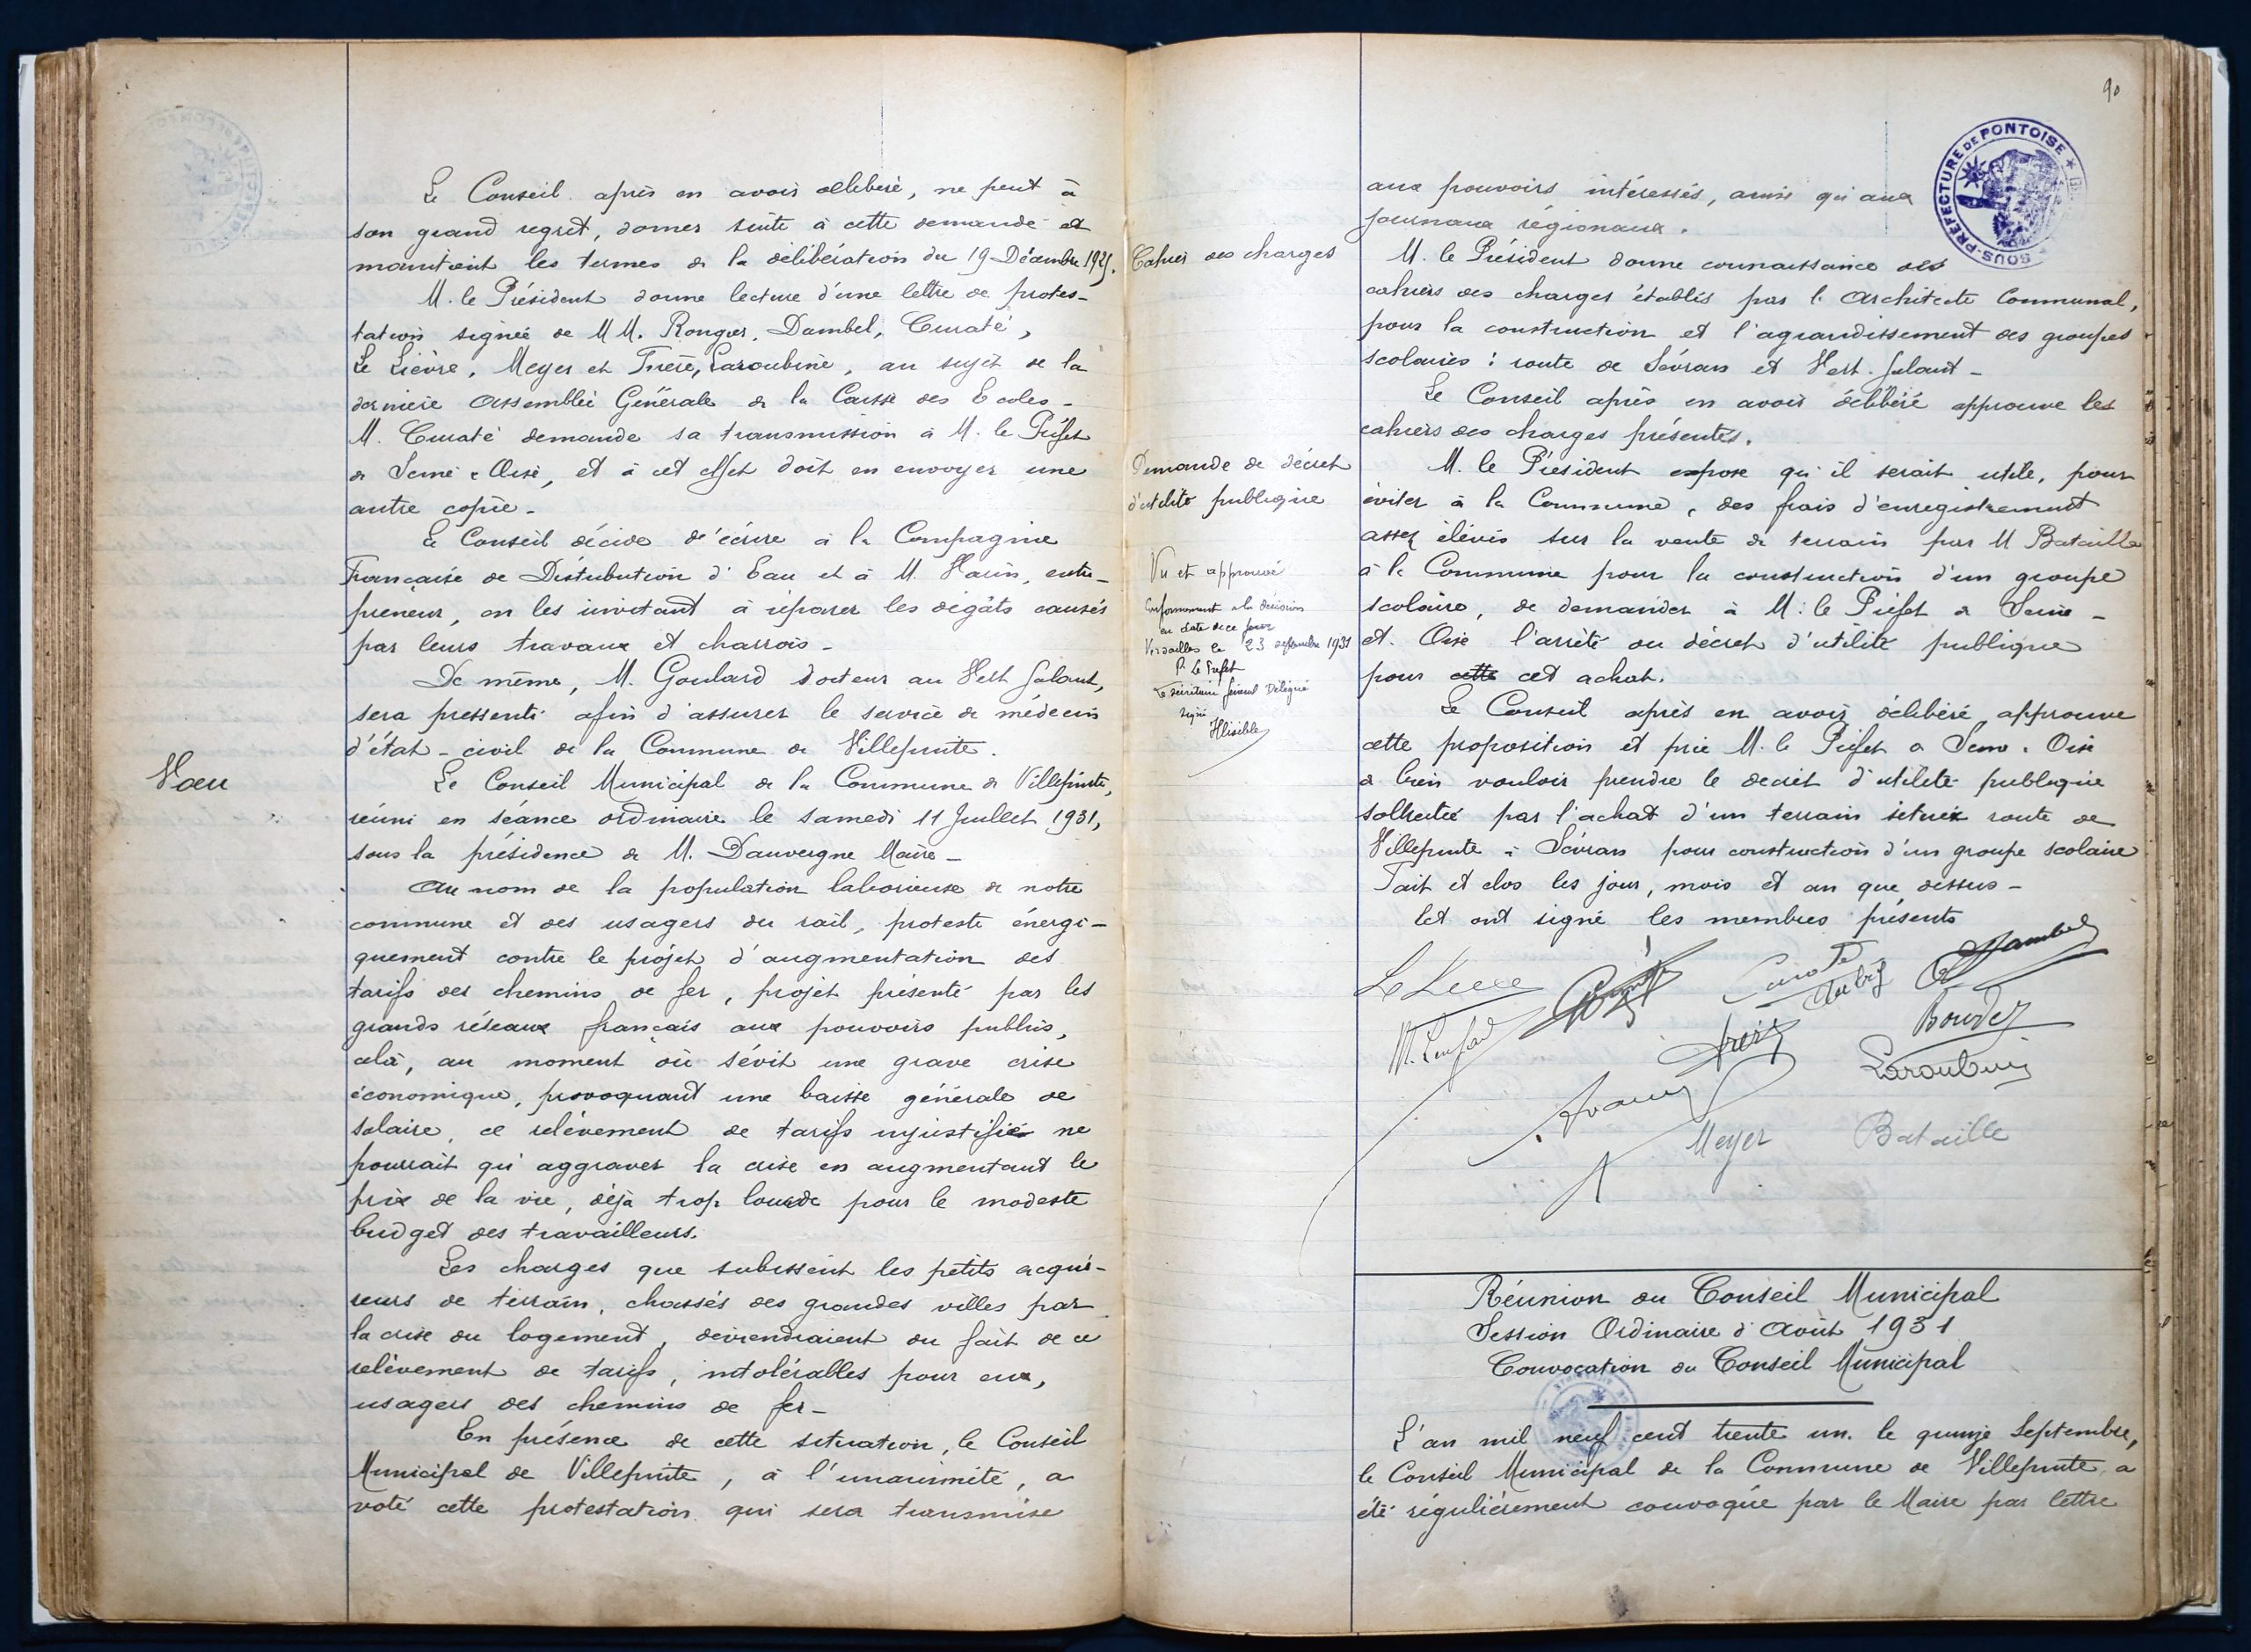 Le Conseil après en avoir délibéré, ne peut à
son grand regret, donner suite à cette demande et
maintient les termes de la délibération du 19 Décembre 1925.
M. le Président donne lecture d'une lettre de protes-
tation signée de MM. Rongier, Dambel, Curaté,
Le Lièvre, Meyer et Frere, Laroubine, au sujet de la
dernière Assemblée Générale de la Caisse des Ecoles -
M. Curaté demande sa transmission à M. le Préfet
de Seine & Oise, et à cet effet doit en envoyer une
autre copie -
Le Conseil décide d'écrire à la Compagnie
Française de Distribution d'Eau et à M. Marin, entre-
preneur, en les invitant à réparer les dégâts causés
par leurs travaux et charrois -
De même, M. Goulard docteur au Vert Galant,
sera pressenti afin d'assurer le service de médecin
d'état-civil de la Commune de Villepinte.
Voeu
Le Conseil Municipal de la Commune de Villepinte,
réuni en séance ordinaire le samedi 11 Juillet 1931,
sous la présidence de M. Dauvergne Maire -
Au nom de la population laborieuse de notre
commune et des usagers du rail, proteste énergi-
quement contre le projet d'augmentation des
tarifs des chemins de fer, projet présenté par les
grands réseaux français aux pouvoirs publics,
celà, au moment où sévit une grave crise
économique, provoquant une baisse générale de
salaire, ce relèvement de tarifs injustifié ne
pourrait qu'aggraver la crise en augmentant le
prix de la vie, déjà trop lourde pour le modeste
budget des travailleurs.
Les charges que subissent les petits acqué-
reurs de terrain, chassés des grandes villes par
la crise du logement, deviendraient du fait de ce
relèvement de tarifs, intolérables pour eux,
usagers des chemins de fer -
En présence de cette situation, le Conseil
Municipal de Villepinte, à l'unanimité, a
voté cette protestation qui sera transmise
90
SOUS-PRÉFECTURE DE PONTOISE
aux pouvoirs intéressés, ainsi qu'aux
journaux régionaux.
Cahier des charges
M. le Président donne connaissance des
cahiers des charges établis par l'Architecte Communal,
pour la construction et l'agrandissement des groupes
scolaires : route de Sévran et Vert-Galant -
Le Conseil après en avoir délibéré approuve les
cahiers des charges présentés.
Demande de décret
d'utilité publique
M. le Président expose qu'il serait utile, pour
éviter à la Commune, des frais d'enregistrement
assez élevés sur la vente de terrain par M Bataille
à la Commune pour la construction d'un groupe
scolaire, de demander à M. le Préfet de Seine -
et-Oise l'arrêté ou décret d'utilité publique
pour cette cet achat.
Vu et approuvé
Conformément à la décision
en date de ce jour
Versailles le 23 septembre 1931
P. Le Préfet
Le Secrétaire Général Délégué
signé
Illisible
Le Conseil après en avoir délibéré approuve
cette proposition et prie M. le Préfet de Seine & Oise
de bien vouloir prendre le décrêt d'utilité publique
sollicitée par l'achat d'un terrain situé route de
Villepinte à Sévran pour construction d'un groupe scolaire
Fait et clos les jour, mois et an que dessus -
Et ont signé les membres présents
Curaté
Dambel
Frere
Boudez
Laroubine
Meyer
Bataille
Réunion du Conseil Municipal
Session Ordinaire d'Août 1931
Convocation du Conseil Municipal
L'an mil neuf cent trente un. le quinze Septembre,
le Conseil Municipal de la Commune de Villepinte, a
été régulièrement convoquée par le Maire par lettre